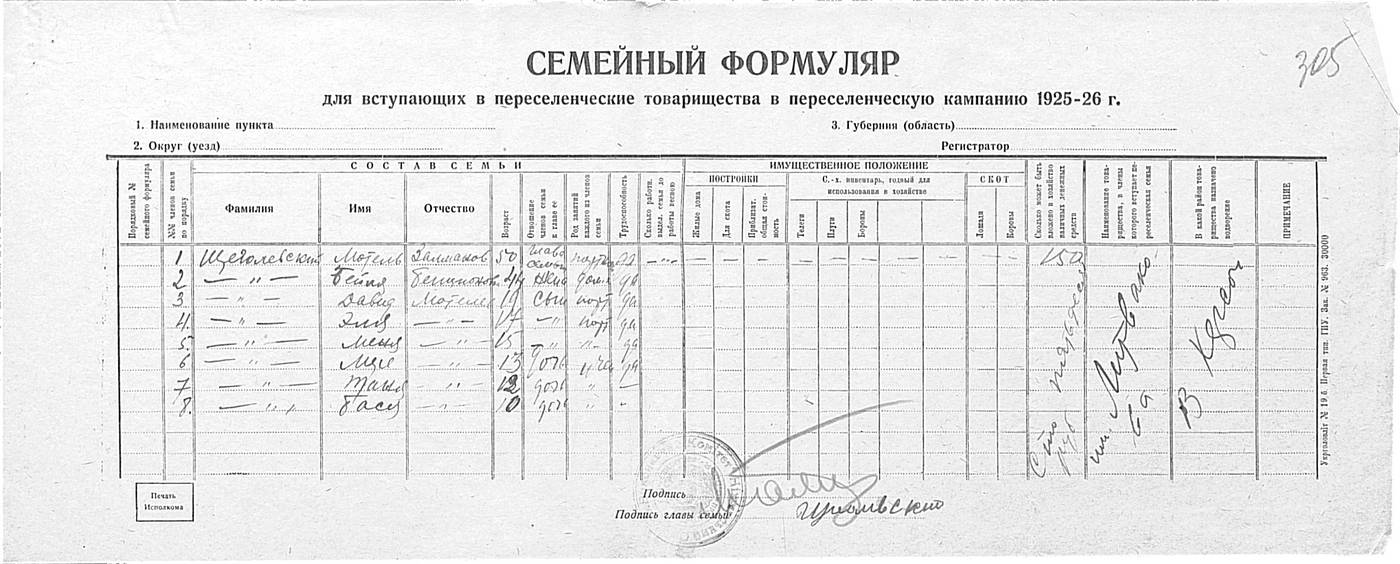 305
СЕМЕЙНЫЙ ФОРМУЛЯР
для вступающих в переселенческие товарищества в переселенческую кампанию 1925-26 г.
1. Наименование пункта
3. Губерния (область)
2. Округ (уезд)
Регистратор
СОСТАВ СЕМЬИ
ИМУЩЕСТВЕННОЕ ПОЛОЖЕНИЕ
Порядковый № семейного формуляра
№№ членов семьи по порядку
Фамилия
Имя
Отчество
Возраст
Отношение членов семьи к главе ее
Род занятий каждого из членов семьи
Трудоспособность
Сколько работн. выдел. семья до работы весною
ПОСТРОЙКИ
Жилые дома
Для скота
Приблизит. общая стоимость
С.-х. инвентарь, годный для использования в хозяйстве
Телеги
Плуги
Бороны
СКОТ
Лошади
Коровы
Сколько может быть вложено в хозяйство наличных денежных средств
Наименование товарищества, в члены которого вступает переселенческая семья
В какой район товарищества назначено водворение
ПРИМЕЧАНИЕ
1 Мотель Залманов 50 глава семьи да — „ — — — — — — — — — — — — 150
2 — „ — Бейля 44 жена дом. да
3 — „ — Давид Мотелев 19 сын порт да
4. — „ — Эля — „ — 17 — „ порт да
5. — „ — Меня — „ — 15 „ „ да
6 — „ — — „ — 13 дочь уча да
7 — „ — Таня — „ — 12 дочь „ —
8. — „ — Бася — „ — 10 дочь „ -
Сто пятьдесят руб
им.
В Херсон
Печать Исполкома
Подпись
Подпись главы семьи
Укрголовліт № 19.б. Первая тип. ГИУ. Зак. № 963. 30000